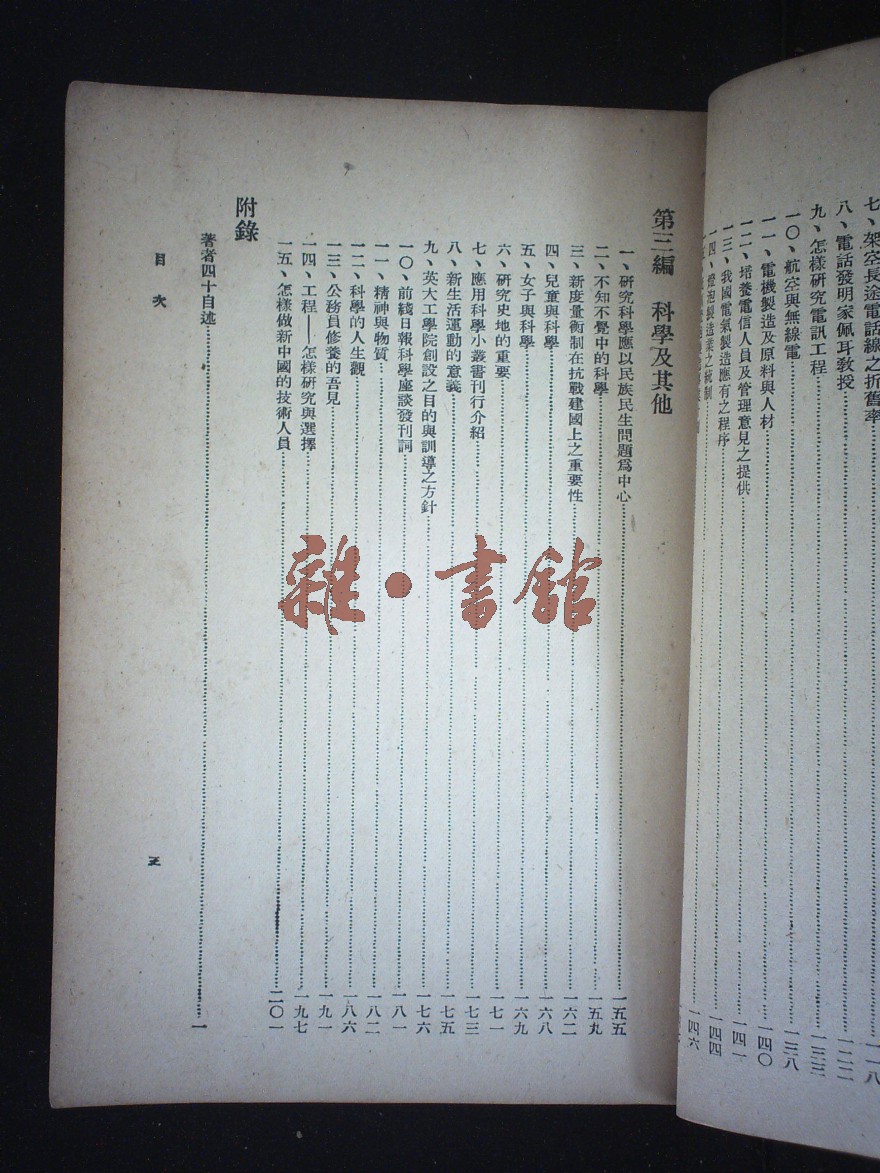 七、架空長途電話線之折舊率……一一八
八、電話發明家佩耳教授……一二二
九、怎樣研究電訊工程……一三三
一〇、航空與無線電……一三八
一一、電機製造及原料與人材……一四〇
一二、培養電信人員及管理意見之提供……一四一
一三、我國電氣製造應有之程序……一四四
一四、燈泡製造業之統制……一四六
第三編 科學及其他
一、研究科學應以民族民生問題爲中心……一五五
二、不知不覺中的科學……一五九
三、新度量衡制在抗戰建國上之重要性……一六二
四、兒童與科學……一六八
五、女子與科學……一六九
六、研究史地的重要……一七一
七、應用科學小叢書刊行介紹……一七三
八、新生活運動的意義……一七五
九、英大工學院創設之目的與訓導之方針……一七六
一〇、前綫日報科學座談發刊詞……一八一
一一、精神與物質……一八二
一二、科學的人生觀……一八六
一三、公務員修養的吾見……一九一
一四、工程——怎樣研究與選擇……一九七
一五、怎樣做新中國的技術人員……二〇一
附錄
著者四十自述……一
目次
五
雜·書館